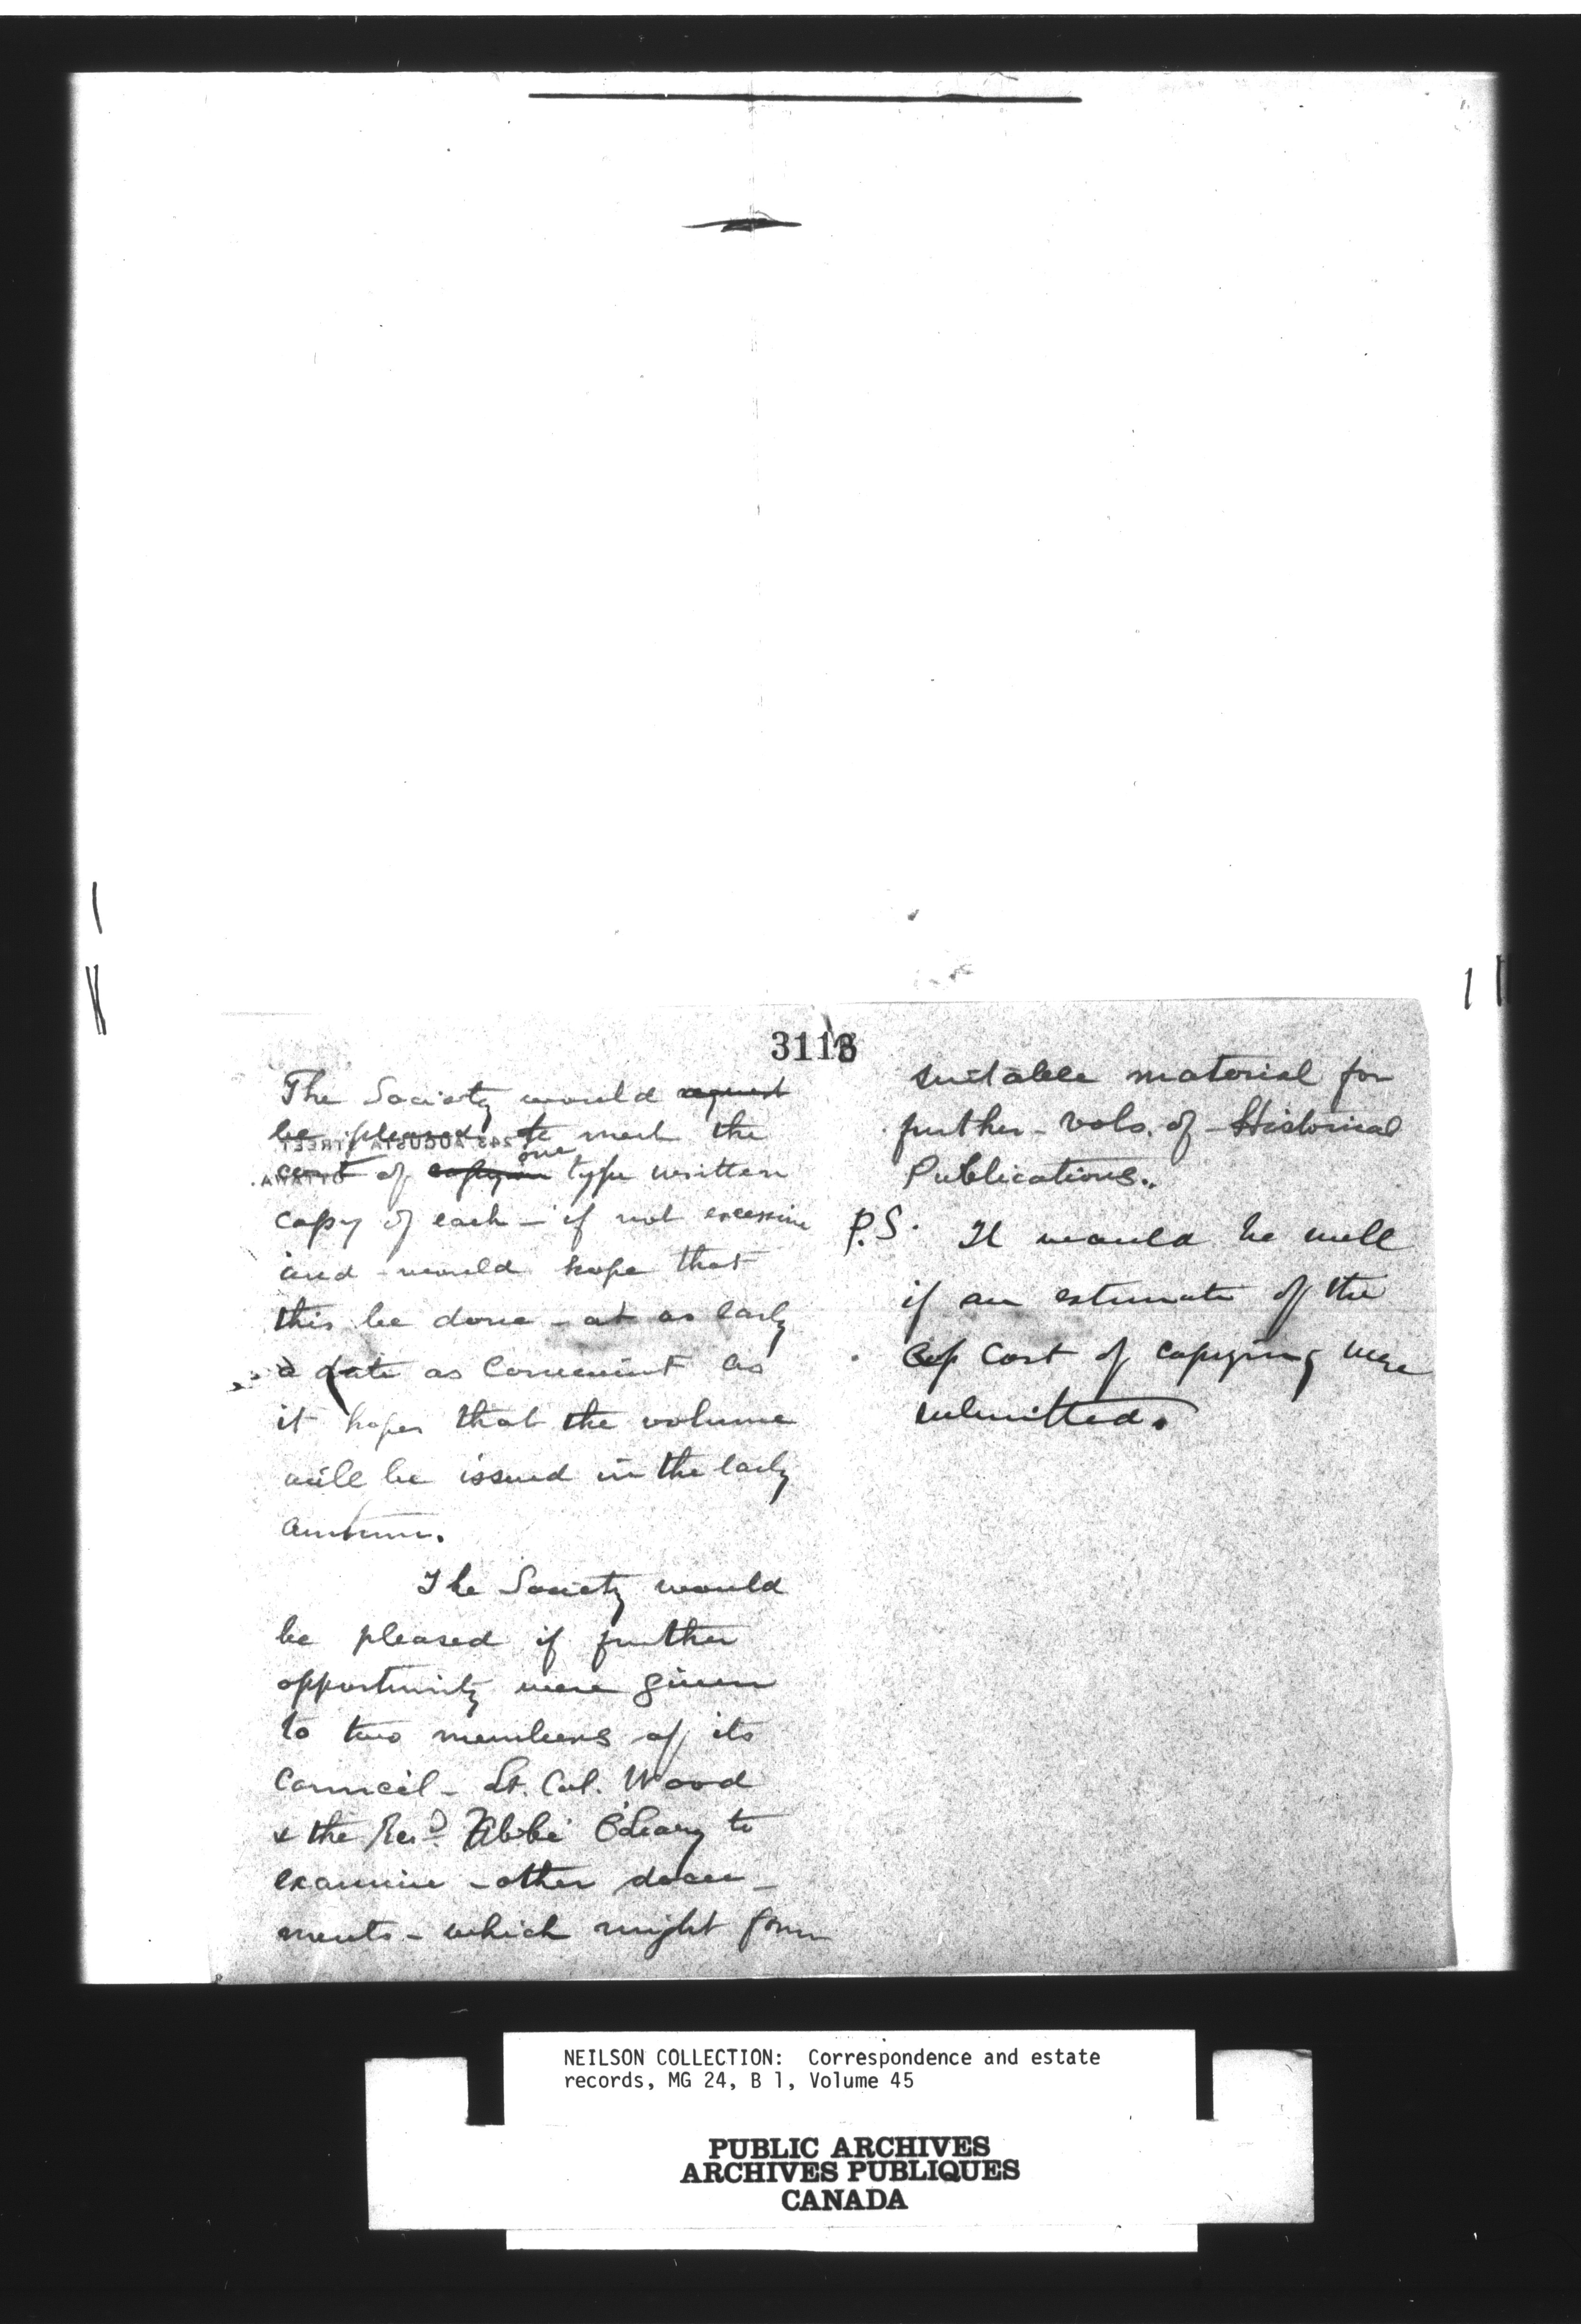 3118
The Society would request
be pleased to meet the
cost of copying one type written
copy of each - if not excessive
and would hope that
this be done - at as early
a date as convenient as
it hopes that the volume
will be issued in the early
autumn.
The Society would
be pleased if further
opportunity were given
to two members of its
Council - Lt. Col. Wood
& the Revd. Abbé O'Leary to
examine - other docu-
ments - which might form
suitable material for
further - vols. of - Historical
Publications.
P.S. It would be well
if an estimate of the
cop cost of copying were
submitted.
NEILSON COLLECTION: Correspondence and estate
records, MG 24, B 1, Volume 45
PUBLIC ARCHIVES
ARCHIVES PUBLIQUES
CANADA